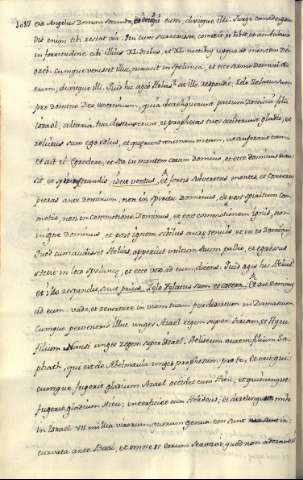 Angelus Domini secundo, et tetigit eum, dixitque illi: Surge comede
enim tibi restat via. Qui cum surrexisset, comedit et bibit, et ambulavit
in fortitudine cibi illius XL diebus, et XL noctibus usque ad montem Dei
Cumque venisset illuc, mansit in spelunca, et ecce sermo Domini ad
eum, dixitque illi: Quid hic agis Helia? At ille respondit: Zelo Zelatus sum
pro Domino Deo exercituum, quia dereliquerunt pactum Domini filii
Israel, altaria tua destruxerunt, et prophetas tuos occiderunt gladio, et
relictus sum ego solus, et quaerunt animam meam, ut auferant eam
et ait ei Egredere, et sta in montem coram domino et ecce dominus tran
sit et spiritus grandis, montes, et conterens
petras ante dominum, non in spiritu dominus, et post spiritum com
motio, non in commotione Dominus, et post commotionem ignis, non
in igne dominus et post ignem sibilus aurae tenuis
Quod cum audisset Helias, operuit vultum suum pallio, et egressus
stetit in ore speluncae, et ecce vox ad eum dicens: Quid agis hic Helia?
et ille respondit, Zelo Zelatus sum et cetera. Et ait Dominus ad
eum vade, et revertere in viam tuam per desertum in Damascum
Cumque perveneris illuc unges Azael regem super Siriam, et Hyeu
filium Namsi unges regem super Israel, Heliseum autem filium Sa
phath, qui est de Abelmaula unges prophetam pro te, et erit qui
cumque fugerit gladium Azael occidet eum Hieu, et quicumque
fugerit gladium Hieu, interficiet eum Heliseus; et derelinquam mihi
in Israel VII millia virorum, quorum genua non sunt in
curvata ante Baal, et omne os eorum quod non adoravit